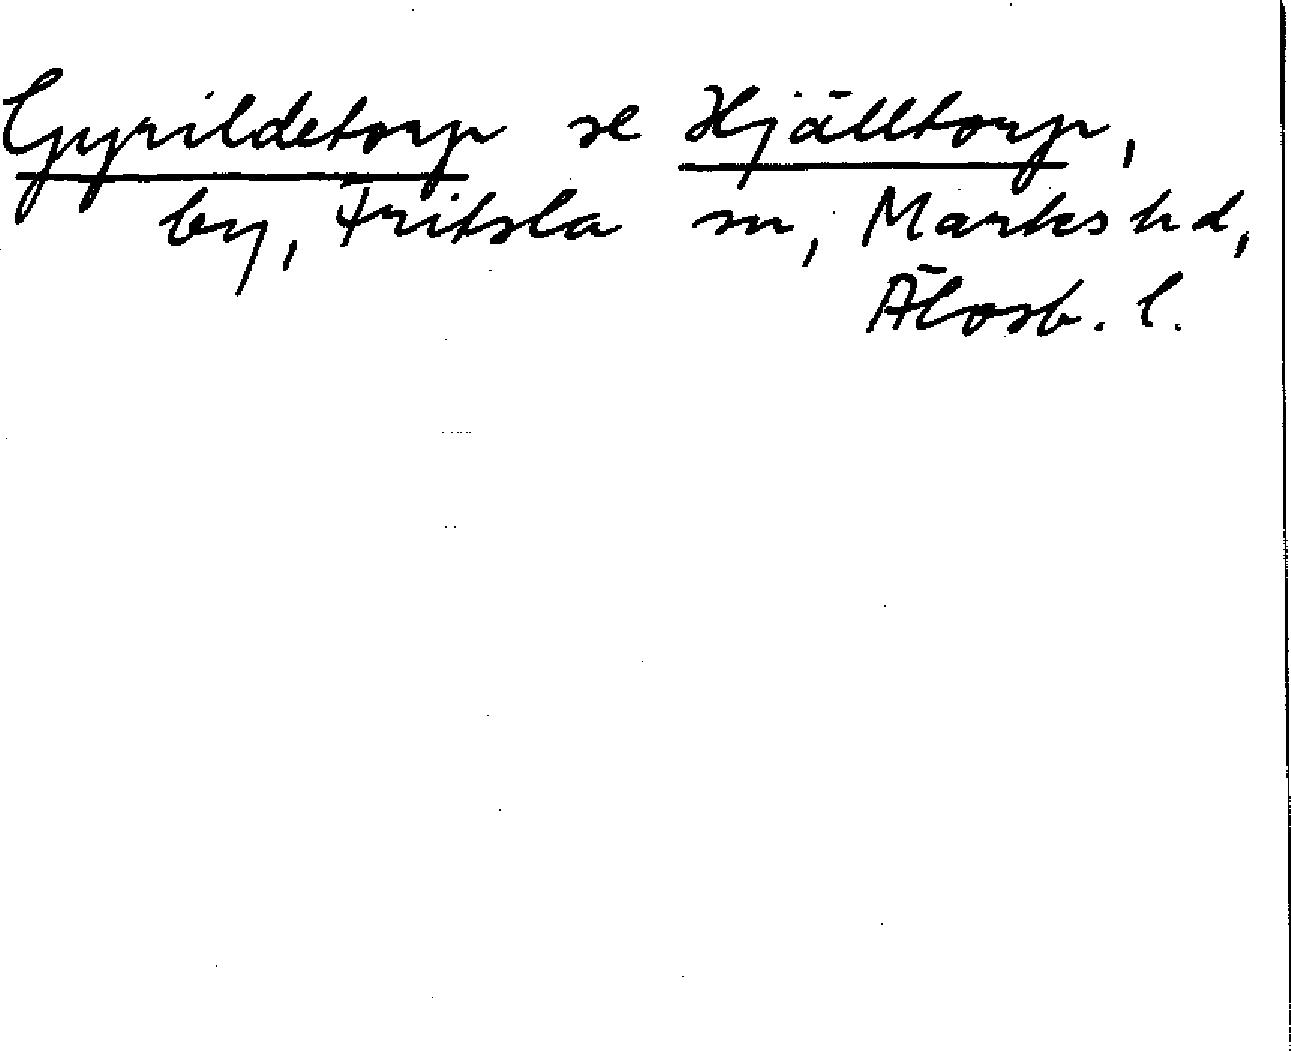 Gyrildetorp se Hjälltorp,
by, Fritsla sn, Marks hd,
Älvsb. l.